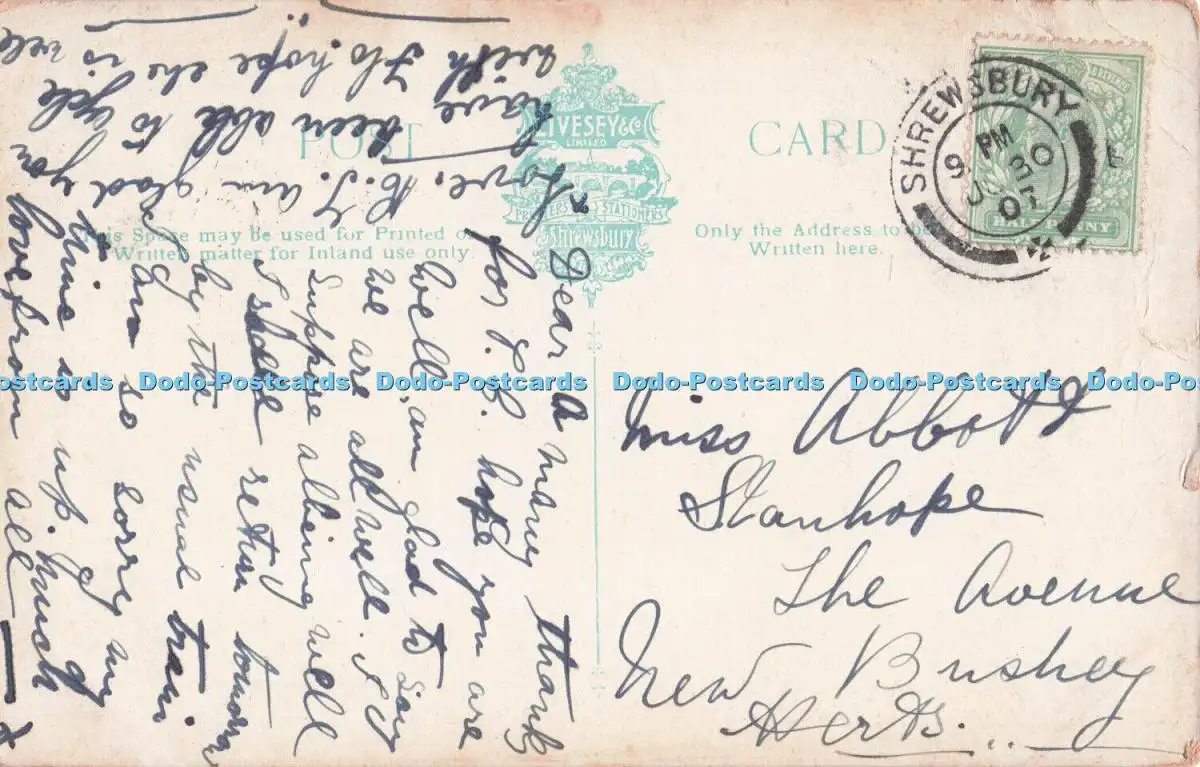 POST CARD
LIVESEY & Co.
LIMITED
PRINTERS AND STATIONERS
Shrewsbury
This Space may be used for Printed or
Written matter for Inland use only.
Only the Address to be
Written here.
SHREWSBURY
9 PM
30
07
HALFPENNY
Dear A many thanks
for P.C. hope you are
Well, am glad to say
we are all well. I
suppose all being well
I shall return tomorrow
by the usual train
am so sorry my
time is up. Much
love from all
love. B. I am glad you
have been able to cycle
with Flo. hope she is well
Miss Abbott
Stanhope
The Avenue
New Bushey
Herts.
Dodo-Postcards Dodo-Postcards Dodo-Postcards Dodo-Postcards Dodo-Postcards Dodo-Postcards